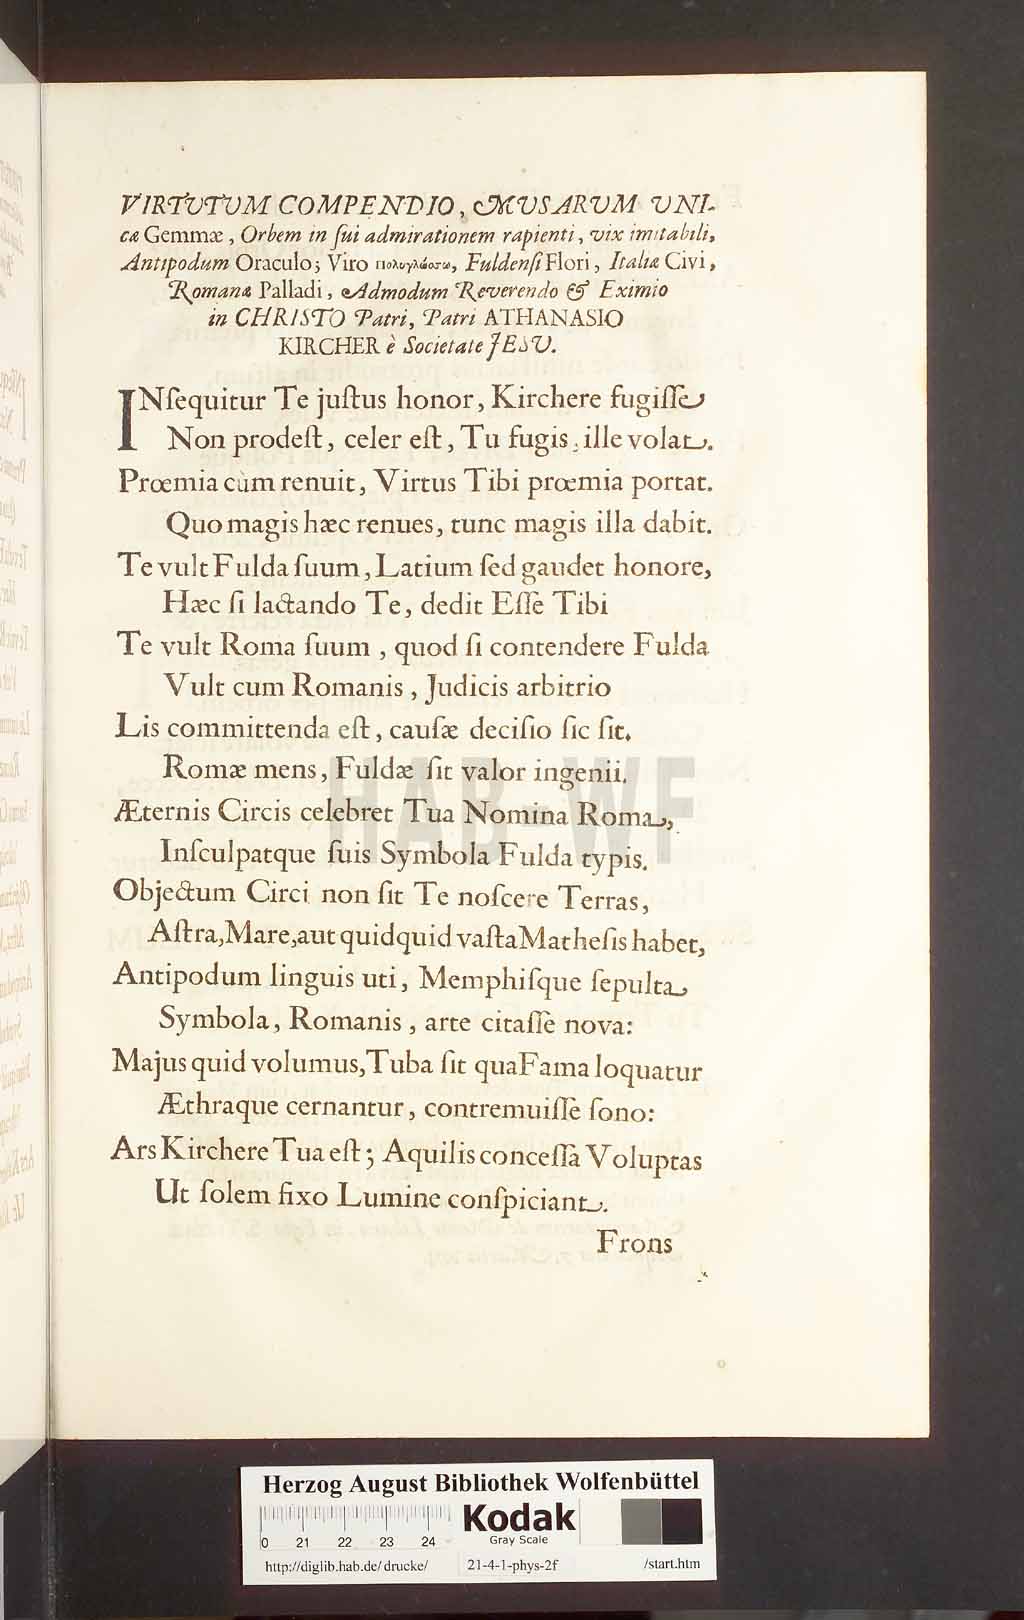 VIRTVTVM COMPENDIO, MVSARVM VNI-
cæ Gemmæ, Orbem in ſui admirationem rapienti, vix imitabili,
Antipodum Oraculo; Viro Πολυγλώσσω, Fuldenſi Flori, Italiæ Civi,
Romanæ Palladi, Admodum Reverendo & Eximio
in CHRISTO Patri, Patri ATHANASIO
KIRCHER è Societate JESU.
INſequitur Te juſtus honor, Kirchere fugiſſe
Non prodeſt, celer eſt, Tu fugis, ille volat.
Prœmia cùm renuit, Virtus Tibi prœmia portat.
Quo magis hæc renues, tunc magis illa dabit.
Te vult Fulda ſuum, Latium ſed gaudet honore,
Hæc ſi lactando Te, dedit Eſſe Tibi
Te vult Roma ſuum, quod ſi contendere Fulda
Vult cum Romanis, Judicis arbitrio
Lis committenda eſt, cauſæ deciſio ſic ſit.
Romæ mens, Fuldæ ſit valor ingenii.
Æternis Circis celebret Tua Nomina Roma,
Inſculpatque ſuis Symbola Fulda typis.
Objectum Circi non ſit Te noſcere Terras,
Aſtra, Mare, aut quidquid vaſta Matheſis habet,
Antipodum linguis uti, Memphiſque ſepulta
Symbola, Romanis, arte citaſſe nova:
Majus quid volumus, Tuba ſit qua Fama loquatur
Æthraque cernantur, contremuiſſe ſono:
Ars Kirchere Tua eſt; Aquilis conceſſa Voluptas
Ut ſolem fixo Lumine conſpiciant.
Frons
HAB-WF
Herzog August Bibliothek Wolfenbüttel
0 21 22 23 24
Kodak
Gray Scale
http://diglib.hab.de/drucke/ 21-4-1-phys-2f /start.htm